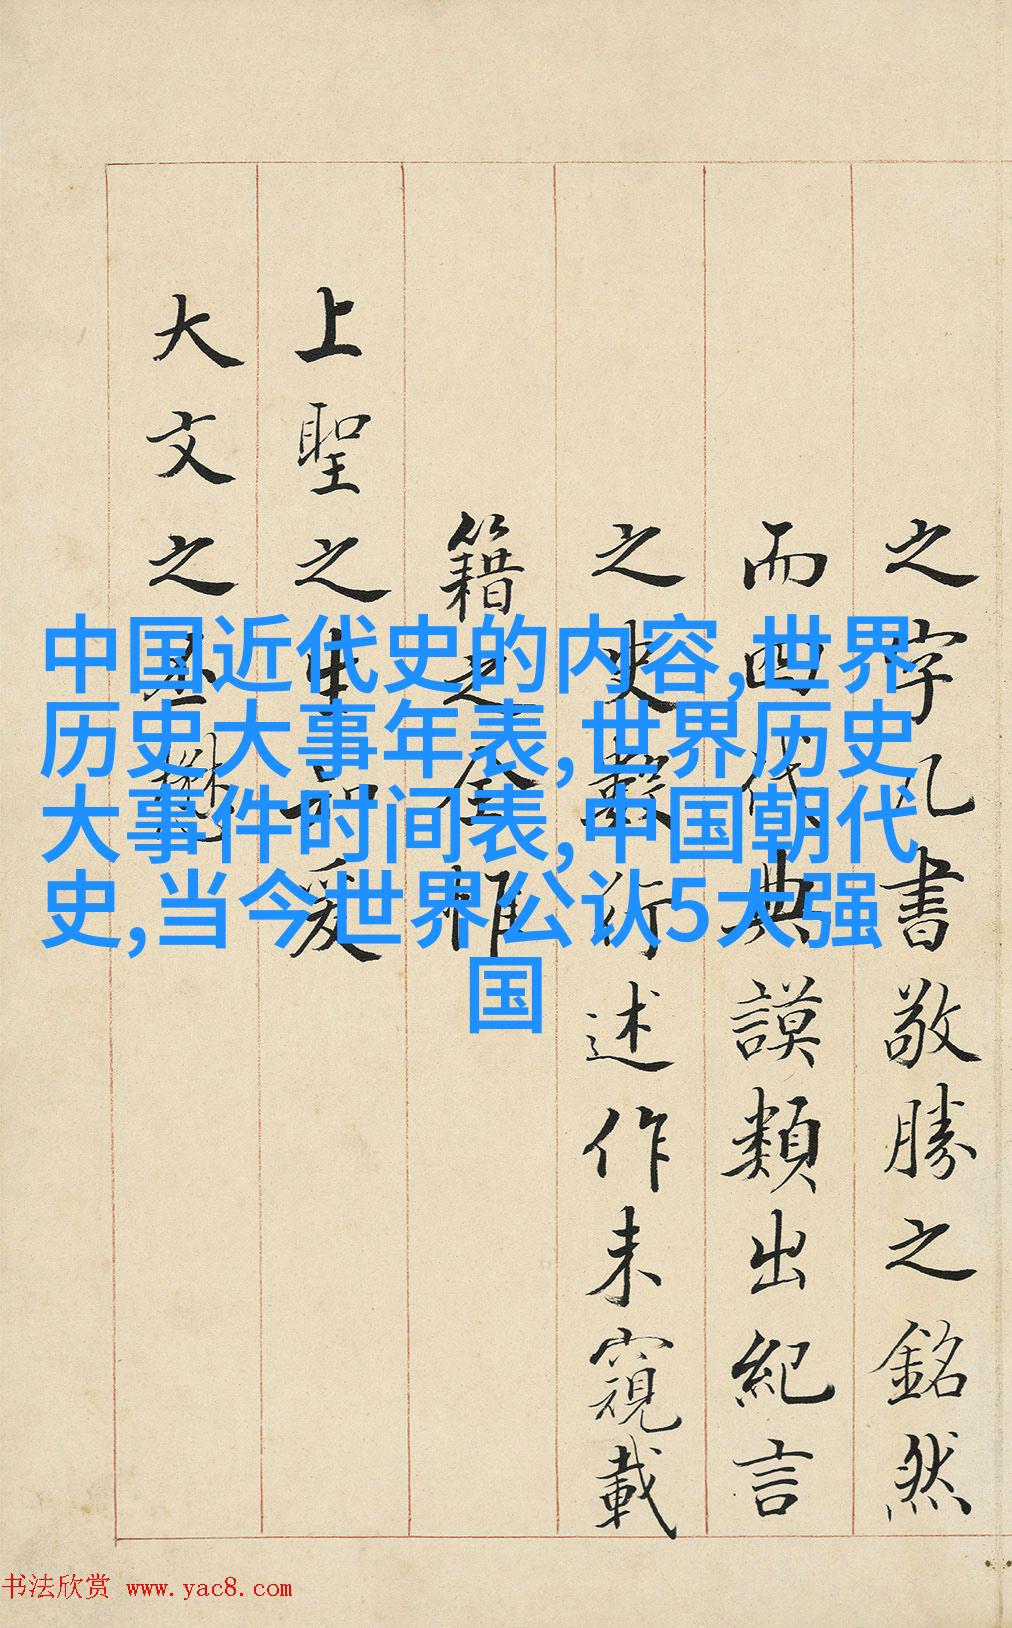 之字几書敬勝之銘然
而四代典謨類出紀言
之史繫衍述作未窺載
籍之全惟
上聖之生知爰
大文之丕懋
中国近代史的内容,世界
历史大事年表,世界历史
大事件时间表,中国朝代
史,当今世界公认5大强
国
书法欣赏 www.yac8.com